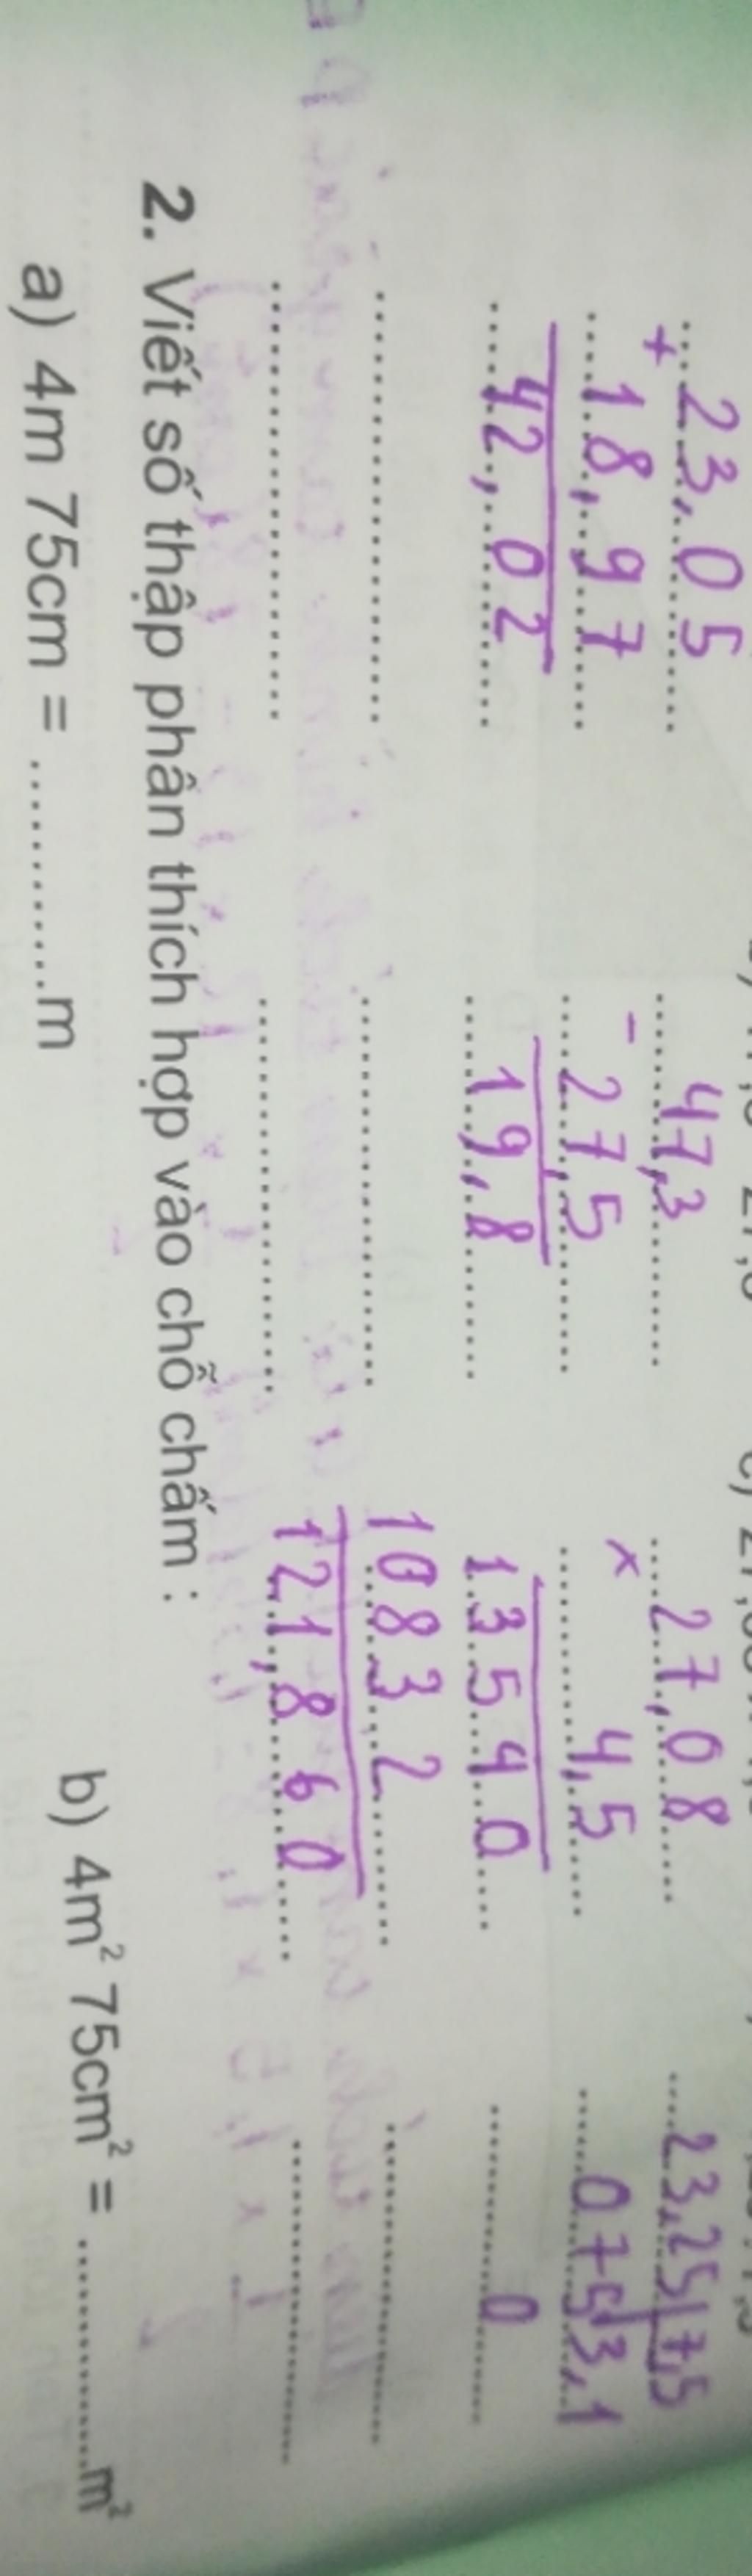 23,05
+
18,97
42,02
47,3
-
27,5
19,8
27,08
×
4,5
13540
10832
121,860
23,25 7,5
075 3,1
0
2. Viết số thập phân thích hợp vào chỗ chấm :
a) 4m 75cm = ............m
b) 4m² 75cm² = ..............m²